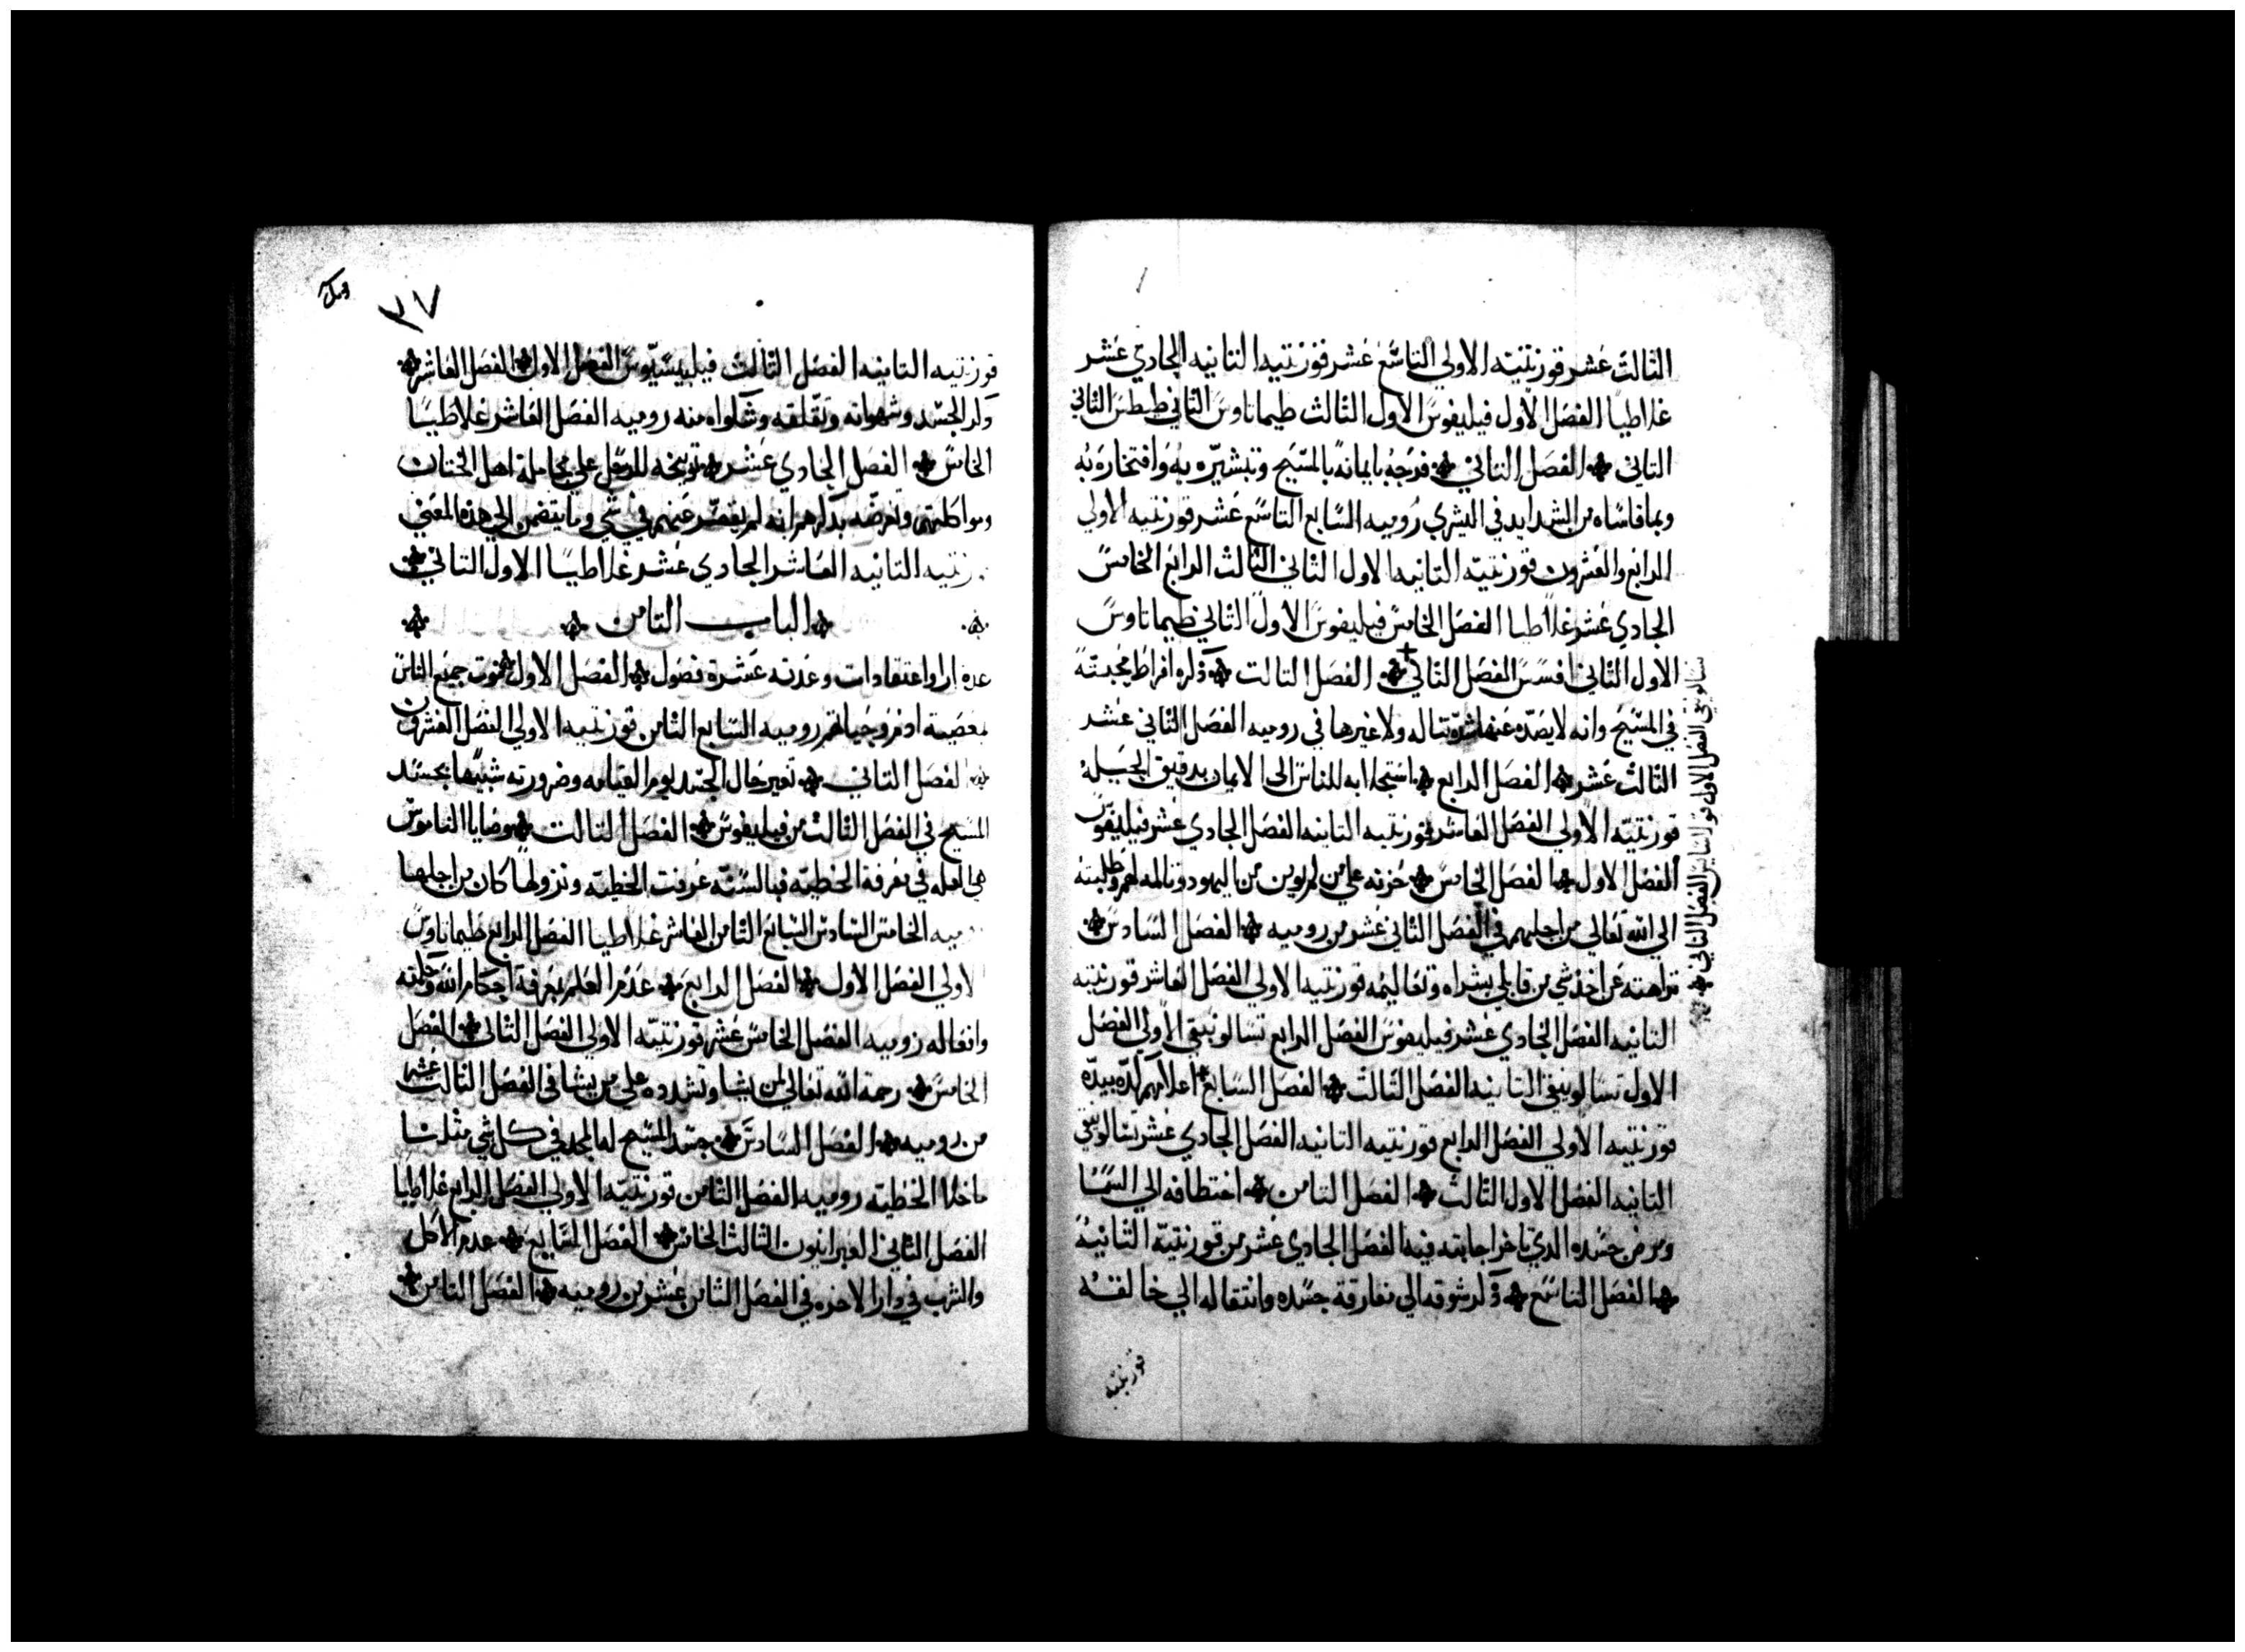 الثالث عشر قورنتيه الاولي التاسع عشر قورنتيه التانيه الحادي عشر
غلاطيا الفصل الاول فيليفوس الاول الثالث طيماتاوس التاني طيطس التاني
التاني الفصل التاني فرحه بايمانه بالمسيح وتبشيره به وافتخاره به
وبما قاساه من الشدايد في البشري روميه السابع التاسع عشر قورنتيه الاولي
الرابع والعشرون قورنتيه التانيه الاول الثاني الثالث الرابع الخامس
الحادي عشر غلاطيا الفصل الخامس فيليفوس الاول الثاني طيماتاوس
الاول الثاني افسس الفصل الثاني الفصل التالت ذكره افراط محبته
في المسيح وانه لا يصده عنها شده تناله ولا غيرها في روميه الفصل الثاني عشر
الثالث عشر الفصل الرابع استجلابه للناس الى الايمان بدقيق الحيله
قورنتيه الاولي الفصل العاشر قورنتيه التانيه الفصل الحادي عشر فيليفوس
الفصل الاول الفصل الخامس حزنه علي من لم يومن من اليهود وتالمه لهم وطلبته
الي الله تعالي من اجلهم في الفصل الثاني عشر من روميه الفصل السادس
نزاهته عن اخذ شي من قابلي بشراه وتعاليمه قورنتيه الاولي الفصل العاشر قورنتيه
التانيه الفصل الحادي عشر فيليفوس الفصل الرابع تسالونيقي الاولي الفصل
الاول تسالونيقي التانيه الفصل الثالث الفصل السابع اعلامهم كده بيده
قورنتيه الاولي الفصل الرابع قورنتيه التانيه الفصل الحادي عشر تسالونيقي
التانيه الفصل الاول الثالث الفصل التامن اختطافه الي السما
ومرض جسده الدي تاخر اجابته فيه الفصل الحادي عشر من قورنتيه الثانيه
الفصل التاسع ذكر شوقه الي مفارقة جسده وانتقاله الي خالقه
قورنتيه
تسالونيقي الفصل الاول الفصل التاني
٣٧
قورنتيه التانيه الفصل الثالث فيليبسيوس الفصل الاول الفصل العاشر
ذكر الجسد وشهواته وتقلقه وشكواه منه روميه الفصل العاشر غلاطيسا
الخامس الفصل الحادي عشر توبيخه للرسل علي مجاملة اهل الختان
ومواكلتهم وتعرضه بذكرهم انه لم يقصر عنهم في شي وما يتضمن الي هذه المعني
التانيه العاشر الحادي عشر غلاطيسا الاول التاني
الباب التامن
عدة ارا واعتقادات وعدته عشرة فصول الفصل الاول موت جميع الناس
بمعصية ادم وحياتهم روميه السابع الثامن قورنتيه الاولي الفصل العشرون
الفصل التاني تغير حال الجسد يوم القيامه وضرورته شبيها بجسد
المسيح في الفصل الثالث من فيليفوس الفصل التالت وصايا الناموس
هي لعله في معرفة الخطيه فبالسنه عرفت الخطيه ونزولها كان من اجلها
الخامس السادس السابع الثامن العاشر غلاطيا الفصل الرابع طيماتاوس
الاولي الفصل الاول الفصل الرابع عدم العلم بمعرفة احكام الله وحكمته
وافعاله روميه الفصل الخامس عشر قورنتيه الاولي الفصل الثاني الفصل
الخامس رحمة الله تعالي لمن يشا وتشدده علي من يشا في الفصل الثالث عشر
من روميه الفصل السادس جسد المسيح له المجد في كل شي مثلنا
ما خلا الخطيه روميه الفصل الثامن قورنتيه الاولي الفصل الرابع غلاطيا
الفصل الثاني العبرانيون الثالث الخامس الفصل السابع عدم الاكل
والشرب في دار الاخره في الفصل الثامن عشر من روميه الفصل الثامن